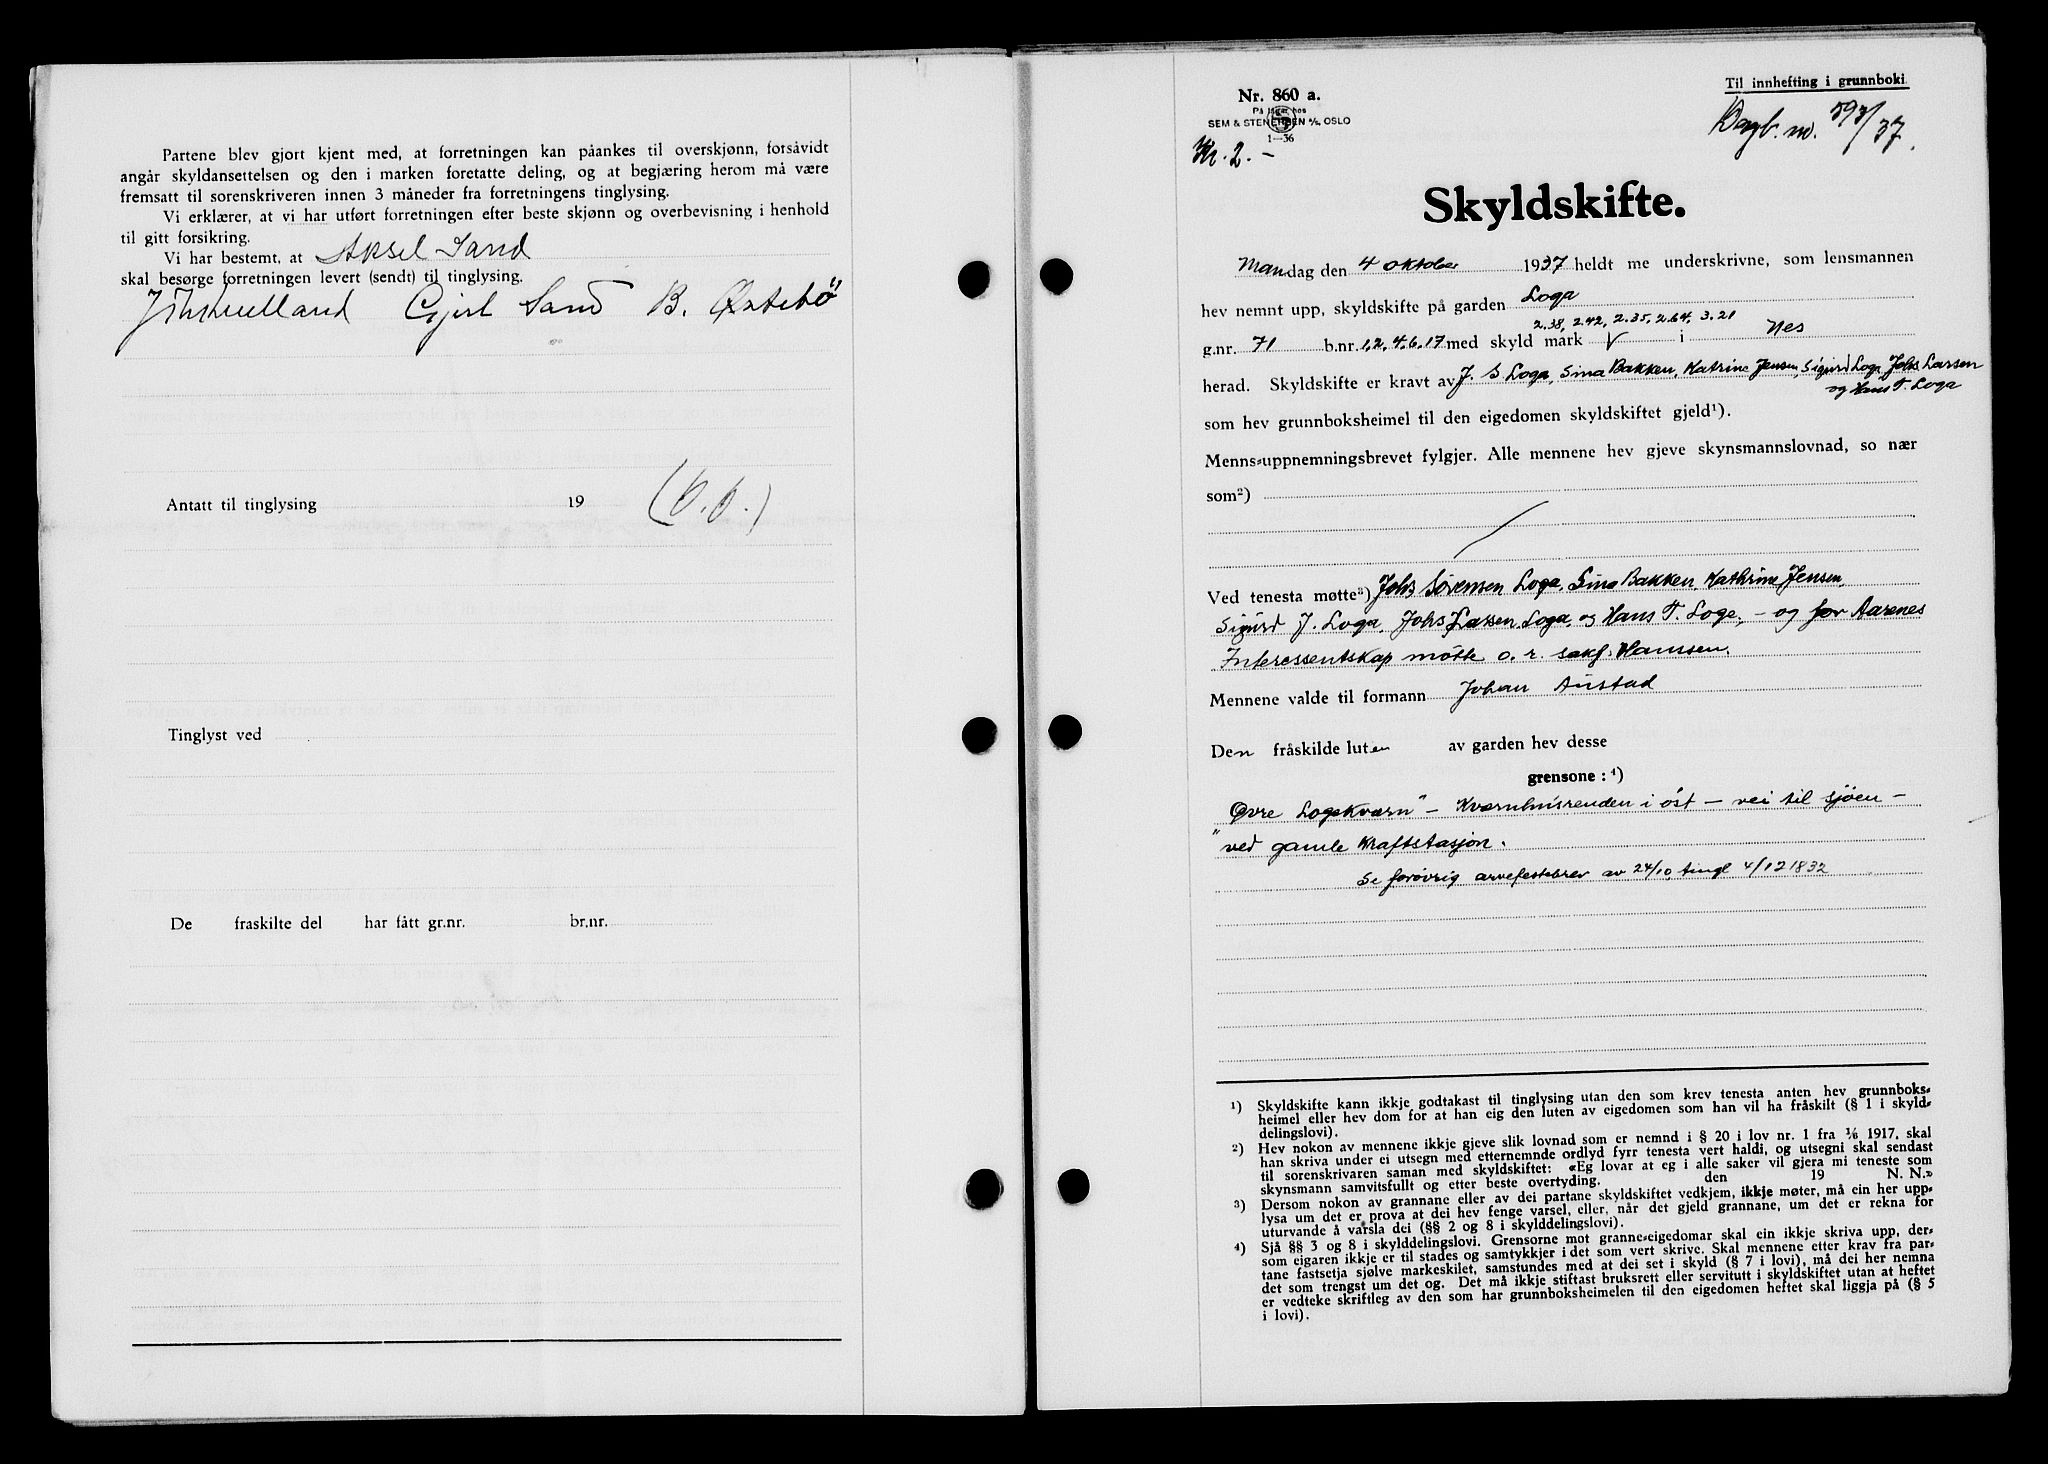 Partene blev gjort kjent med, at forretningen kan påankes til overskjønn, forsåvidt
angår skyldansettelsen og den i marken foretatte deling, og at begjæring herom må være
fremsatt til sorenskriveren innen 3 måneder fra forretningens tinglysing.
Vi erklærer, at vi har utført forretningen efter beste skjønn og overbevisning i henhold
til gitt forsikring.
Vi har bestemt, at Aksel Sand
skal besørge forretningen levert (sendt) til tinglysing.
Gjert Sand B. Østebø
Antatt til tinglysing 19
Tinglyst ved
De fraskilte del har fått gr.nr. br.nr.
Til innhefting i grunnboki
Nr. 860 a.
På lager hos
SEM & STENERSEN A/S, OSLO
1—36
Dagb. nr. 593/37.
Kr. 2.-
Skyldskifte.
Mandag den 4 oktober 1937 heldt me underskrivne, som lensmannen
hev nemnt upp, skyldskifte på garden Loga
2.38, 2.42, 2.35, 2.64, 3.21
g.nr. 71 b.nr. 1,2,4,6,17 med skyld mark i Nes
herad. Skyldskifte er kravt av J. S Loga, Sina Bakken, Katrine Jensen, Sigurd Loga, Johs Larsen
og Hans T. Loga
som hev grunnboksheimel til den eigedomen skyldskiftet gjeld¹).
Menns-uppnemningsbrevet fylgjer. Alle mennene hev gjeve skynsmannslovnad, so nær
som²)
Ved tenesta møtte³) Johs Sørensen Loga, Sina Bakken, Kathrine Jensen,
Sigurd J. Loga, Johs Larsen Loga, og Hans T. Loge, - og for Aarenes
Interessentskap møtte o. r. sakf. Hanssen.
Mennene valde til formann Johan Austad
Den fråskilde luten av garden hev desse
grensone: ⁴)
Øvre Logekværn" - Kværnhusrenden i øst - vei til sjøen -
" ved gamle Kraftstasjon.
Se forøvrig arvefestebrev av 24/10, tingl 4/12 1832
1) Skyldskifte kann ikkje godtakast til tinglysing utan den som krev tenesta anten hev grunnboks-
heimel eller hev dom for at han eig den luten av eigedomen som han vil ha fråskilt (§ 1 i skyld-
delingslovi).
2) Hev nokon av mennene ikkje gjeve slik lovnad som er nemnd i § 20 i lov nr. 1 fra 1/6 1917, skal
han skriva under ei utsegn med etternemnde ordlyd fyrr tenesta vert haldi, og utsegni skal sendast
til sorenskrivaren saman med skyldskiftet: «Eg lovar at eg i alle saker vil gjera mi teneste som
skynsmann samvitsfullt og etter beste overtyding. den 19 N. N.»
3) Dersom nokon av grannane eller av dei partane skyldskiftet vedkjem, ikkje møter, må ein her upp-
lysa um det er prova at dei hev fenge varsel, eller, når det gjeld grannane, um det er rekna for
uturvande å varsla dei (§§ 2 og 8 i skylddelingslovi).
4) Sjå §§ 3 og 8 i skylddelingslovi. Grensorne mot granne-eigedomar skal ein ikkje skriva upp, der-
som eigaren ikkje er til stades og samtykkjer i det som vert skrive. Skal mennene etter krav fra par-
tane fastsetja sjølve markeskilet, samstundes med at dei set i skyld (§ 7 i lovi), må dei her nemna
det som trengst um det og. Det må ikkje stiftast bruksrett eller servitutt i skyldskiftet utan at heftet
er vedteke skriftleg av den som har grunnboksheimelen til den eigedomen heftet skal liggja på (§ 5
i lovi).